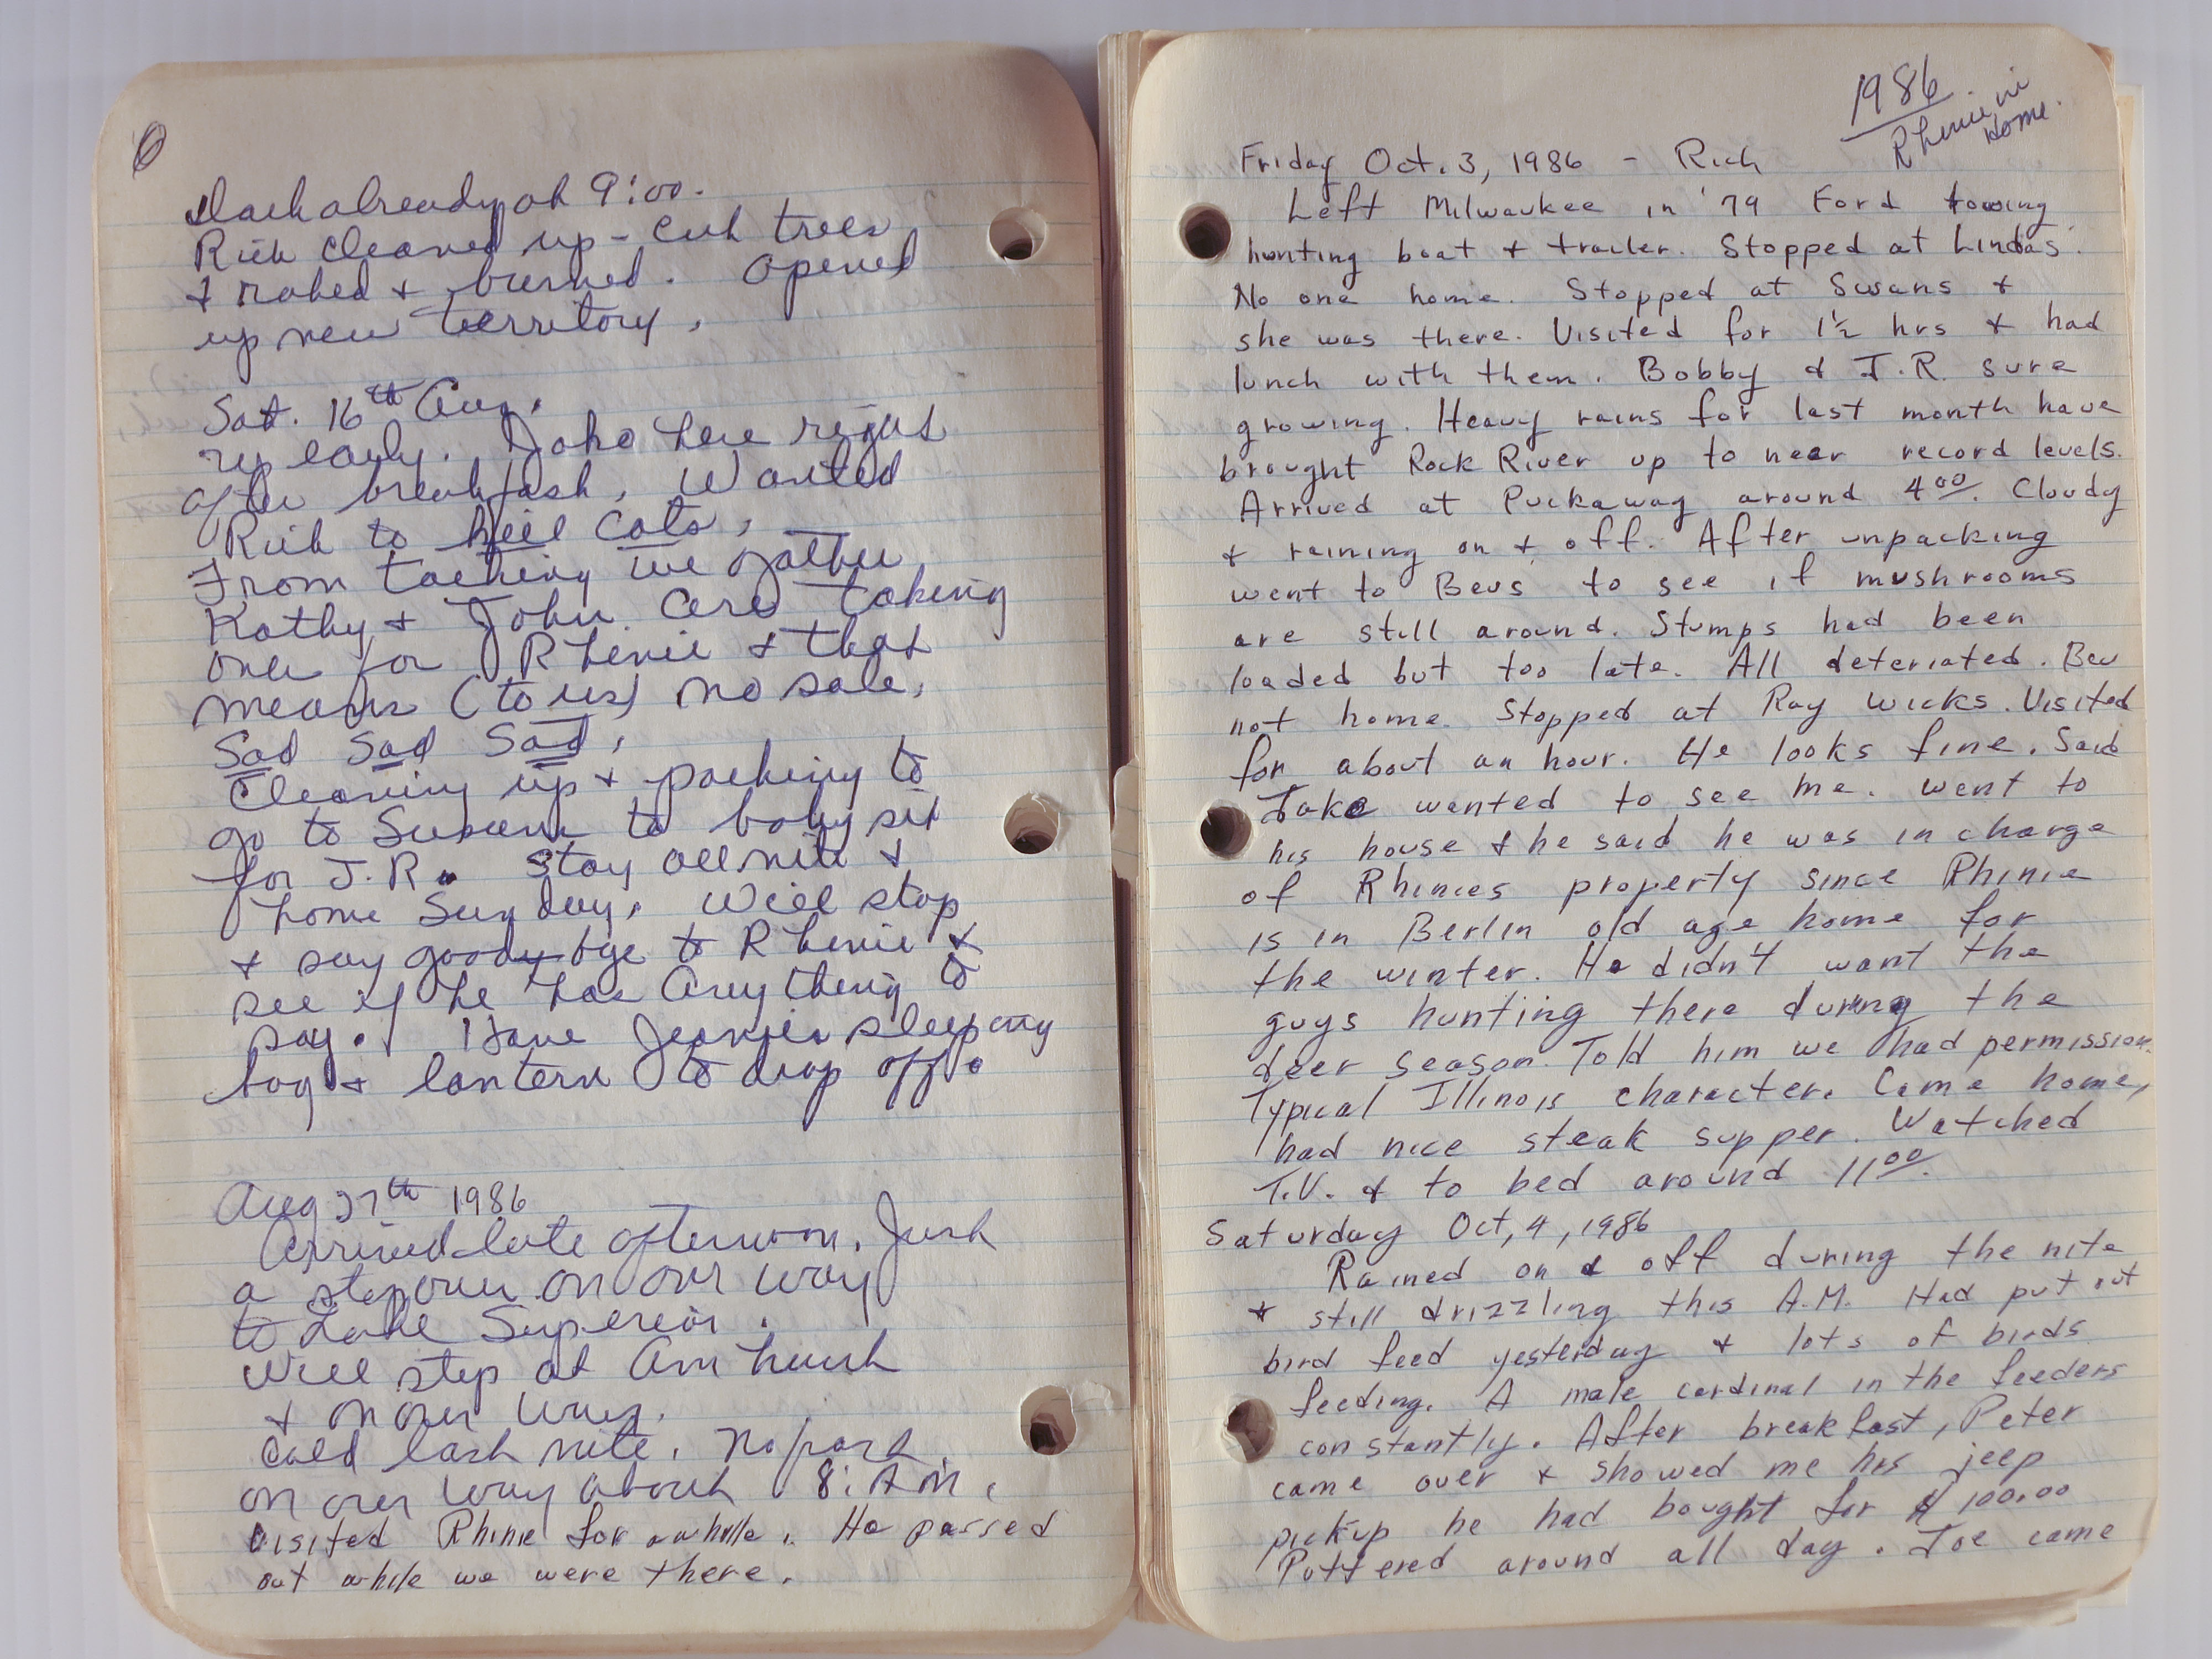 6
Dark already at 9:00.
Rich cleaned up - cut trees
& raked & burned. Opened
up new territory.
Sat. 16th Aug.
up early. Jake here right
after breakfast. Wanted
Rich to kill cats.
From talking we gather
Kathy & John are taking
over for Rhenie & that
means (to us) no sale.
Sad Sad Sad.
Cleaning up & packing to
go to Susans to baby sit
for J.R. Stay all nite &
home Sunday. Will stop
& say goody bye to Rhenie &
see if he has anything to
say. Have Jeanies sleeping
bag & lantern to drop off.
Aug 27th 1986
Arrived late afternoon. Just
a stepover on our way
to Lake Superior.
Will stop at Amherst
& on our way.
Cold last nite.
on our way about 8: A.M.
Visited Rhinie for awhile. He passed
out while we were there.
1986
Rhenie in
Home.
Friday Oct. 3, 1986 - Rich
Left Milwaukee in '79 Ford towing
hunting boat & trailer. Stopped at Lindas.
No one home. Stopped at Susans &
she was there. Visited for 1½ hrs & had
lunch with them. Bobby & J.R. sure
growing. Heavy rains for last month have
brought Rock River up to near record levels.
Arrived at Puckaway around 4:00. Cloudy
& raining on & off. After unpacking
went to Bevs to see if mushrooms
are still around. Stumps had been
loaded but too late. All deteriated. Bev
not home. Stopped at Ray Wicks. Visited
for about an hour. He looks fine. Said
Jake wanted to see me. Went to
his house & he said he was in charge
of Rhinies property since Rhinie
is in Berlin old age home for
the winter. He didn't want the
guys hunting there during the
deer season. Told him we had permission.
Typical Illinois character. Came home,
had nice steak supper. Watched
T.V. & to bed around 11:00.
Saturday Oct, 4, 1986
Rained on & off during the nite
& still drizzling this A.M. Had put out
bird feed yesterday & lots of birds
feeding. A male cardinal in the feeders
constantly. After breakfast, Peter
came over & showed me his jeep
pick-up he had bought for $100.00
Puttered around all day. Joe came